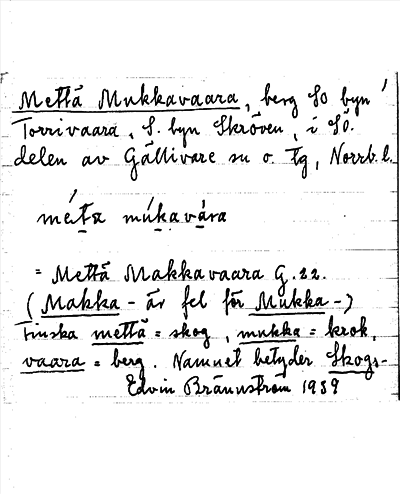 Mettä Mukkavaara, berg SO byn
Torrivaara, S. byn Skröven, i SÖ.
delen av Gällivare sn o. tg, Norrb. l.
méta múkavára
= Mettä Makkavaara G. 22.
(Makka- är fel för Mukka-)
Finska mettä = skog, mukka = krok,
vaara = berg. Namnet betyder Skogs-
Edvin Brännström 1939